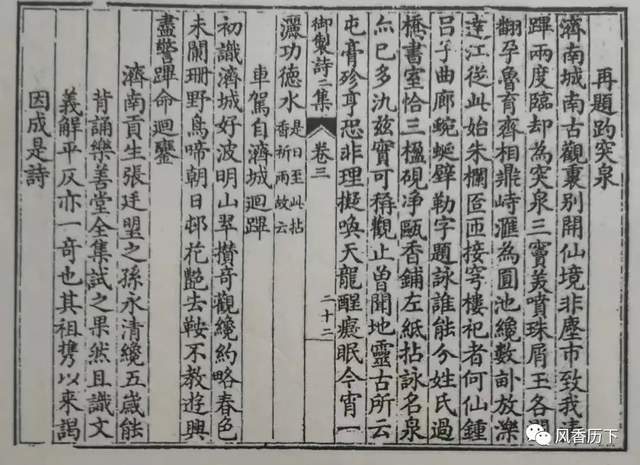 再題趵突泉
濟南城南古觀裏別開仙境非塵市致我清
蹕兩度臨却為突泉三竇美噴珠屑玉各
翻孕魯育齊相鼎峙滙為圓池纔數畝放濼
達江從此始朱欄匼匝接穹樓祀者何仙鍾
呂子曲廊蜿蜒壁勒字題詠誰能分姓氏過
橋書室恰三楹硯凈甌香鋪左紙拈詠名泉
亦已多氿茲實可稱觀止曽聞地靈古所云
屯膏殄享恐非理擬喚天龍醒癡眠今宵一
御製詩二集 卷三 二十二
灑功德水 是日至此拈香祈雨故云
車駕自濟城迴蹕
初識濟城好波明山翠攢奇觀纔約略春色
未闌珊野鳥啼朝日邨花艷去鞍不教遊興
盡警蹕命迴鑾
濟南貢生張廷曌之孫永清纔五歲能
背誦樂善堂全集試之果然且識文
義解平仄亦一奇也其祖攜以來謁
因成是詩
风香历下